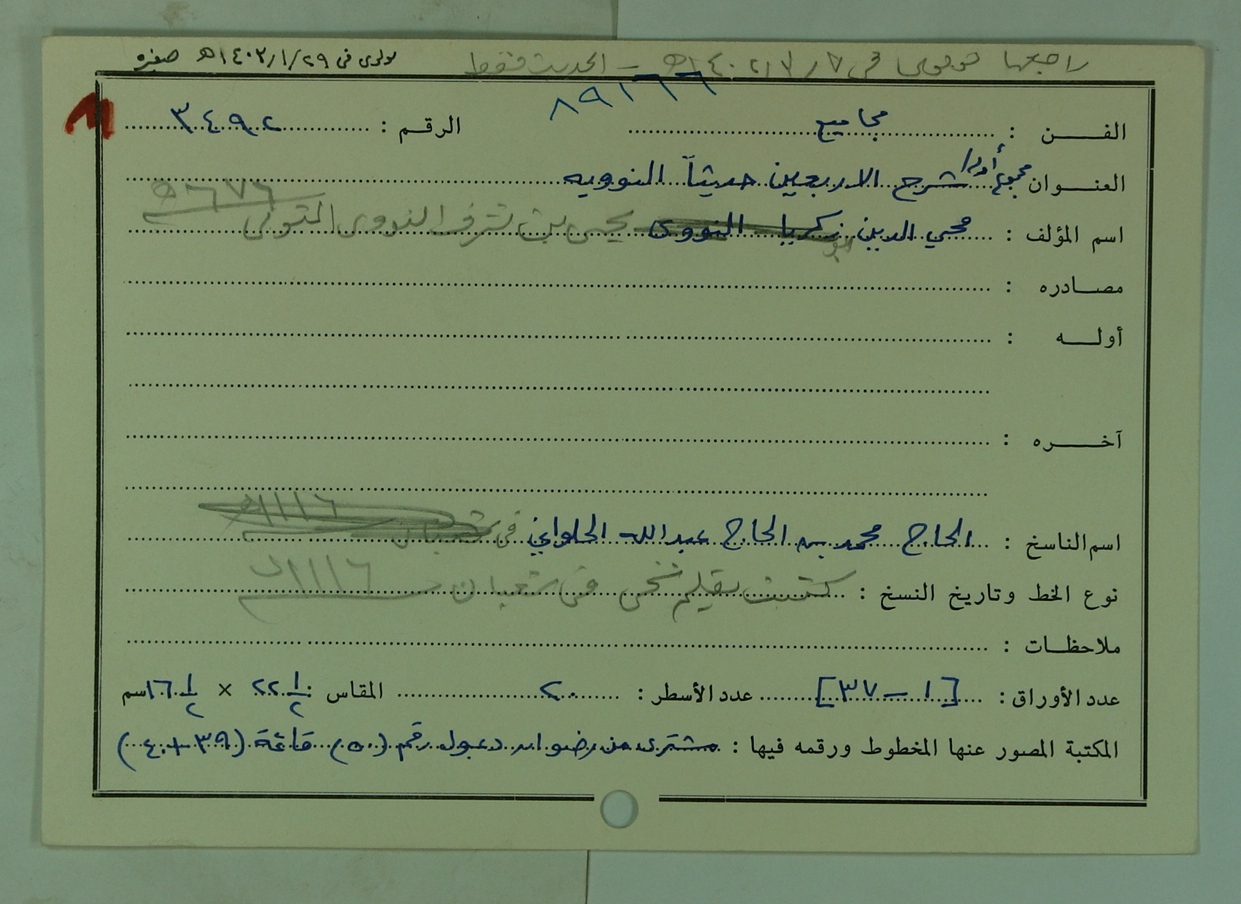 راجعها موسى في ٧/٧/١٤٠٢هـ - الحديث فقط
مولوى في ١٤٠٢/١/٢٩هـ
٨٩١٦٦
الفن : مجاميع الرقم : ٣٤٩٢
١١
العنوان مجموع أوله/ شرح الاربعين حديثاً النوويه
اسم المؤلف : محيي الدين زكريا النووى يحيى بن شرف النووى المتوفى ٦٧٦هـ
أبو
مصادره :
أوله :
آخره :
اسم الناسخ : الحاج محمد بن الحاج عبدالله الحلواني في شعبان ١١١٦هـ
نوع الخط وتاريخ النسخ : كتبت بقلم نسخي في شعبان سـ ١١١٦هـ
ملاحظات :
عدد الأوراق : [١ - ٣٧] عدد الأسطر : ٢٠ المقاس : ٢٢ ١/٢ × ١٦ ١/٢ سم
المكتبة المصور عنها المخطوط ورقمه فيها : مشترى من رضوان دعبول رقم (٥٠) قائمة (٣٩+٤٠)